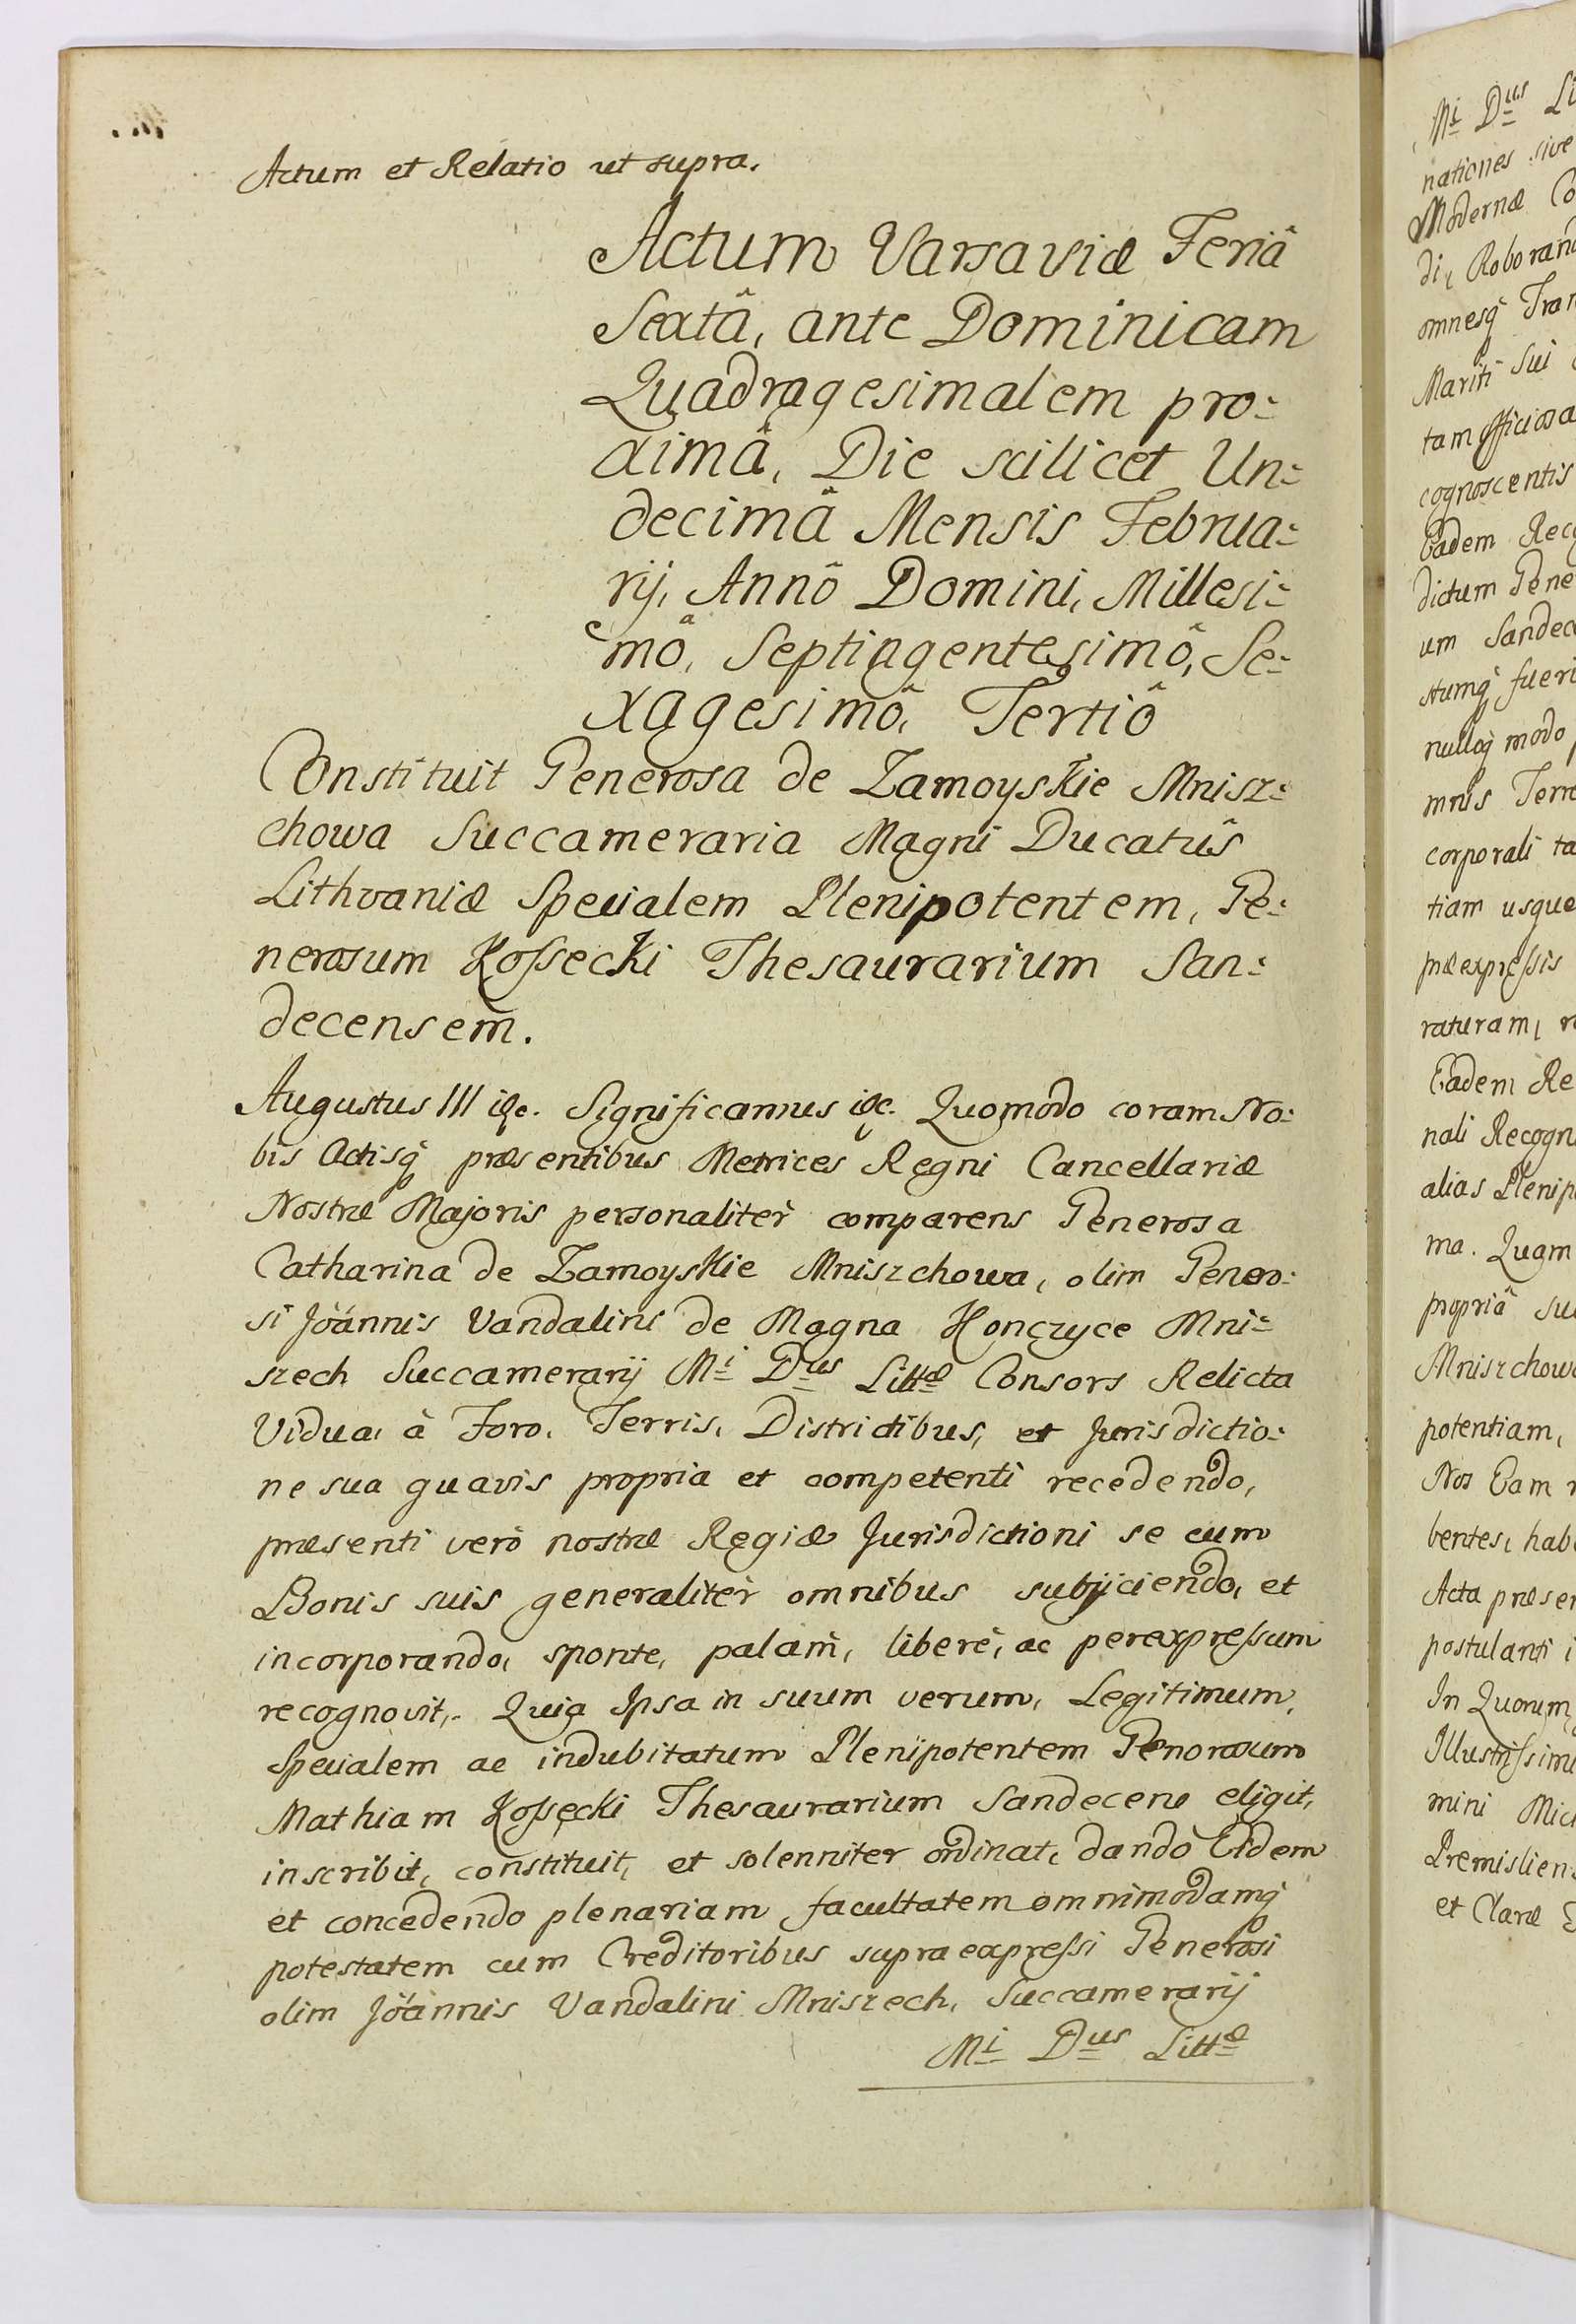 Actum et Relatio ut supra.
Actum Varsaviæ Feriâ
Sextâ, ante Dominicam
Quadragesimalem pro=
ximâ, Die scilicet Un=
decimâ Mensis Februa=
rij, Annô Domini, Millesi=
mô, Septingentesimô, Se=
xagesimô, Tertiô
Constituit Generosa de Zamoyskie Mnisz=
chowa Succameraria Magni Ducatûs
Lithvaniæ Specialem Plenipotentem, Ge=
nerosum Kossecki Thesaurarium San=
decensem.
Augustus III &c. Significamus &c. Quomodo coram No=
bis Actisq præsentibus Metrices Regni Cancellariæ
Nostræ Majoris personalitèr comparens Generosa
Catharina de Zamoyskie Mniszchowa, olim Genero=
si Joánnis Vandalini de Magna Konczyce Mni=
szech Succamerarij Mi Dus Littæ Consors Relicta
Vidua, à Foro, Terris, Districtibus, et Jurisdictio=
ne sua quavis propria et competenti recedendo,
præsenti verò nostræ Regiæ Jurisdictioni se cum
Bonis suis generalitèr omnibus subjiciendo, et
incorporando, sponte, palam, liberè, ac perexpressum
recognovit, Quia Ipsa in suum verum, Legitimum,
Specialem ac indubitatum Plenipotentem Generosum
Mathiam Kossecki Thesaurarium Sandecens eligit,
inscribit, constituit, et solenniter ordinat, dando Eidem
et concedendo plenariam facultatem omnimodamq
potestatem cum Creditoribus supra expressi Generosi
olim Joánnis Vandalini Mniszech, Succamerarij
Mi Dus Littæ
Mi Dus Li
nationes sive
Modernæ Co
di, Roborand
omnesq Tran
Mariti Sui
tam officiosa
cognoscentis
Eadem Reco
dictum Gene
um Sandec
stumq fueri
nulloq modo
mnis Terre
corporali ta
tiam usque
præexpressis
raturam, r
Eadem Re
nali Recogn
alias Plenip
ma. Quam
propriâ su
Mniszchowa
potentiam,
Nos Eam r
bentes, hab
Acta præsen
postulanti i
In Quorum
Illustrissimi
mini Mich
Premislien
et Claræ